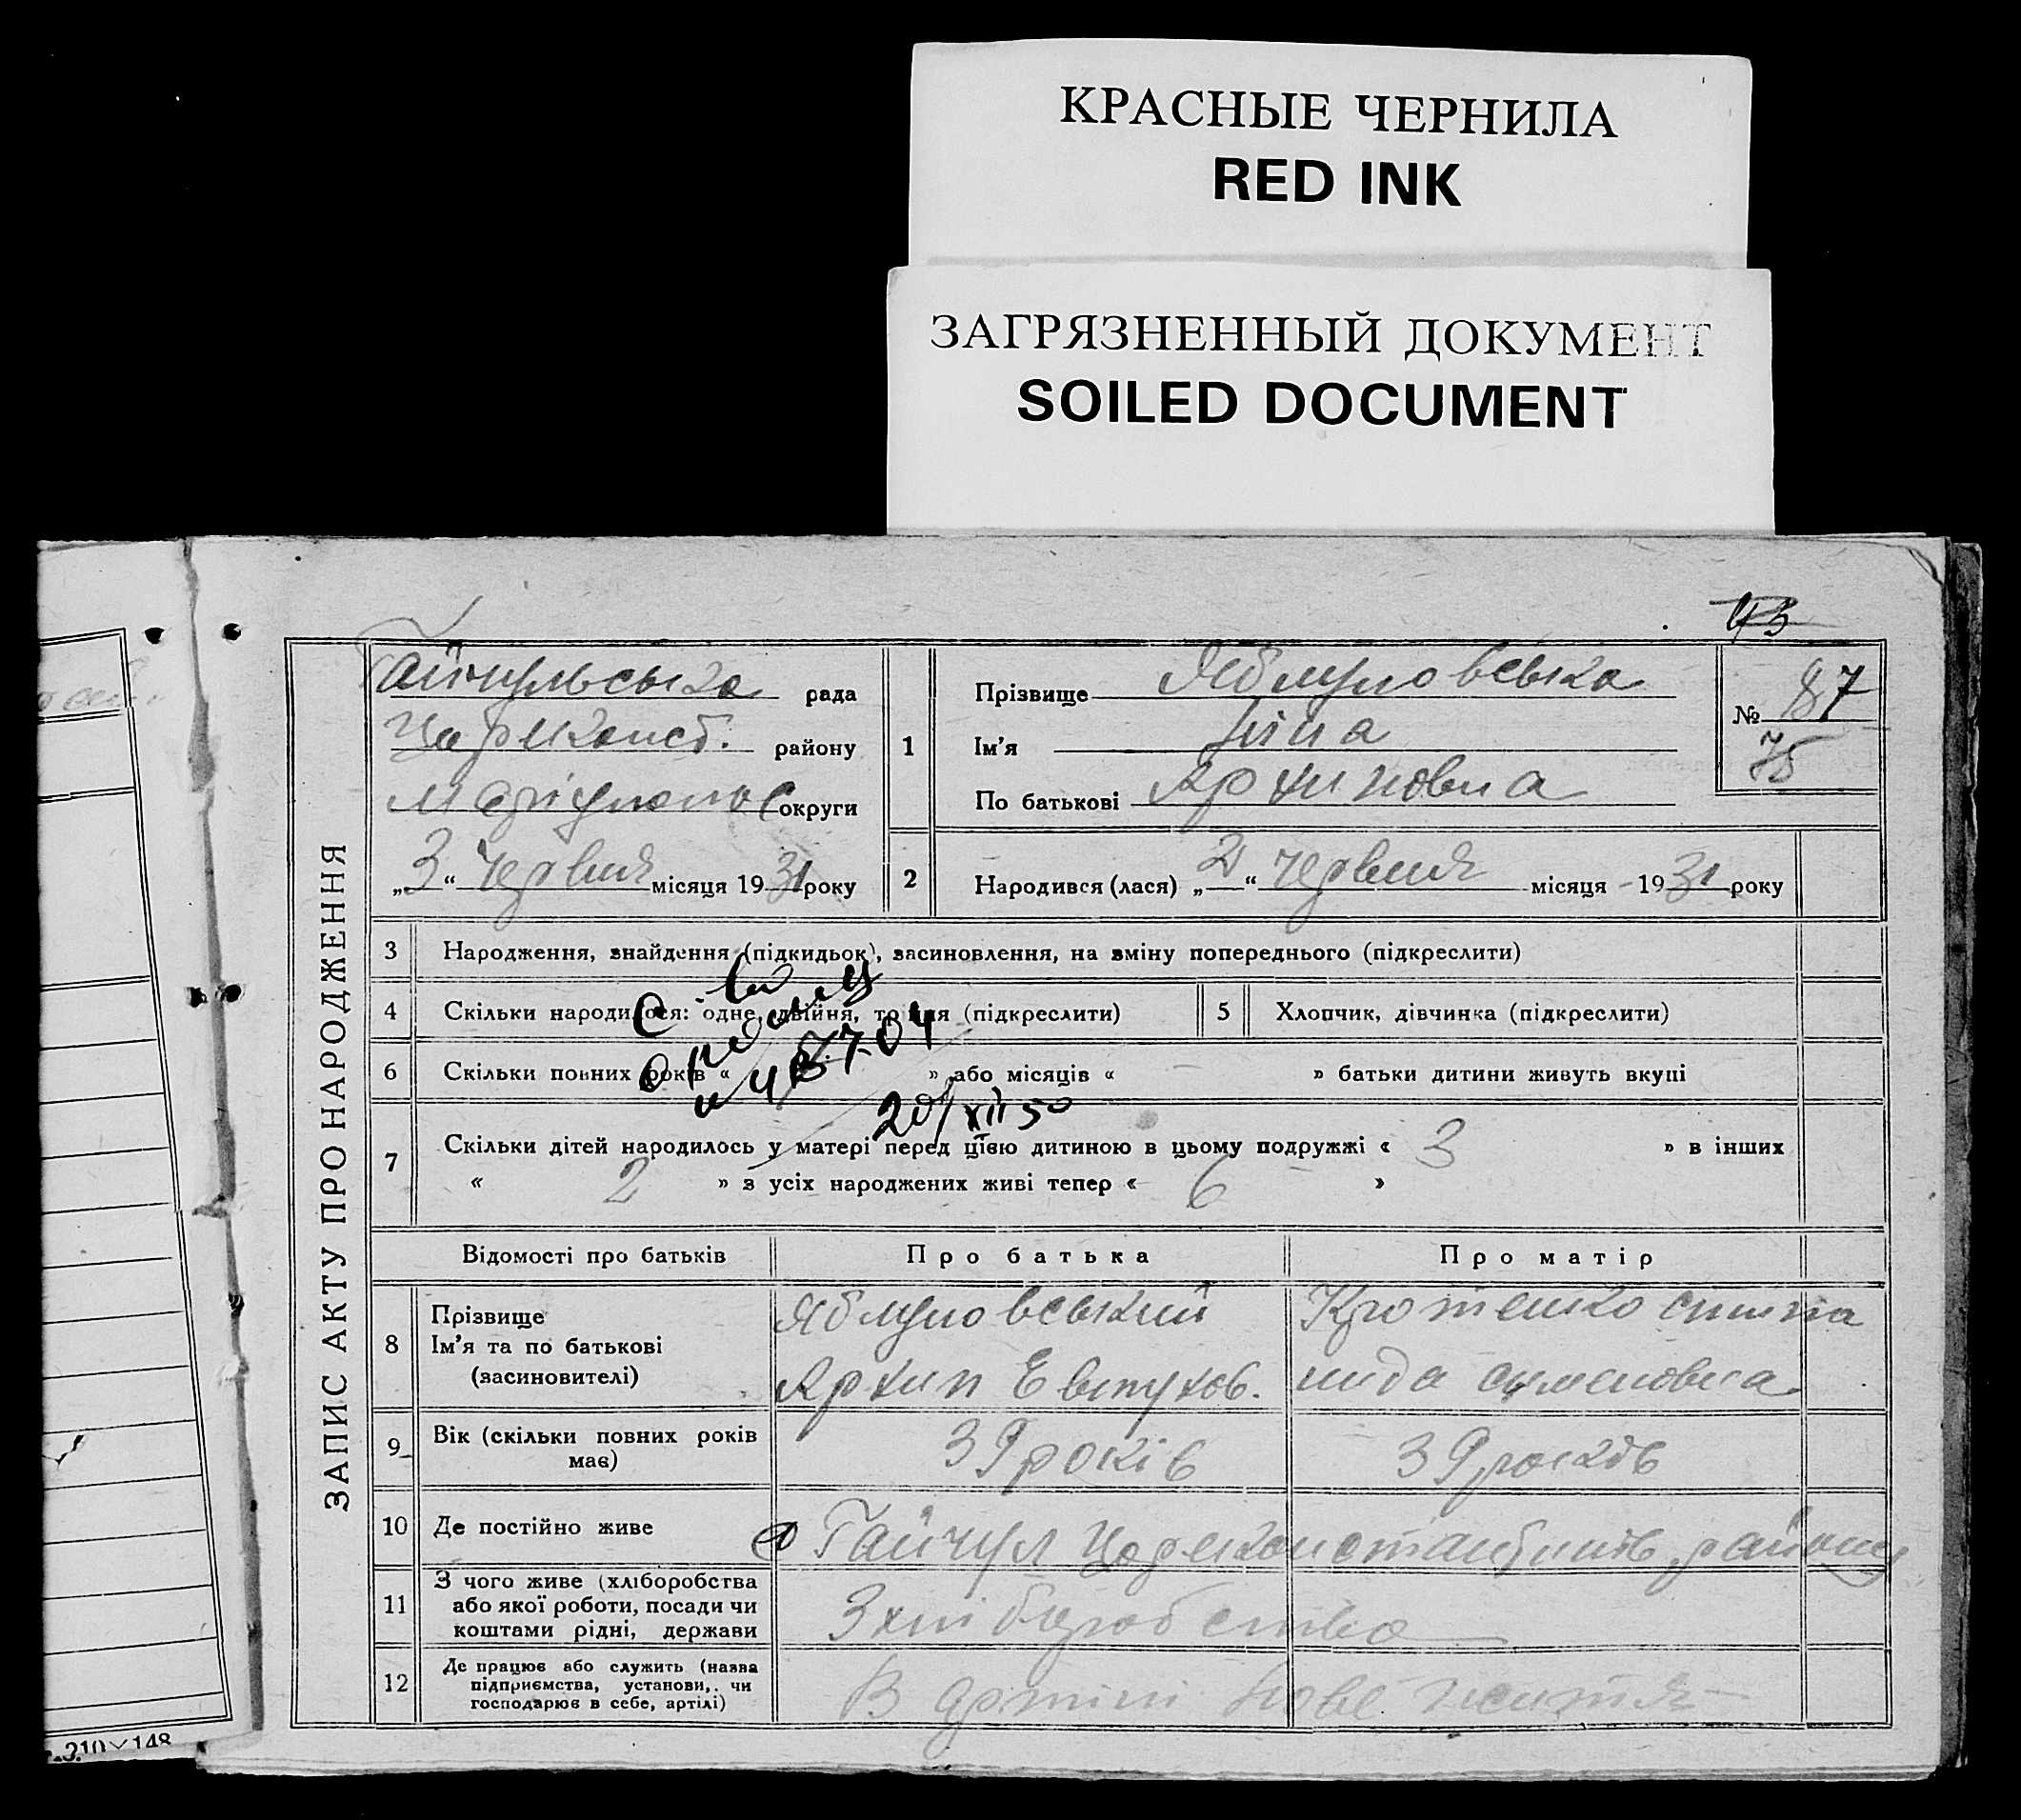 КРАСНЫЕ ЧЕРНИЛА
RED INK
ЗАГРЯЗНЕННЫЙ ДОКУМЕНТ
SOILED DOCUMENT
43
ЗАПИС АКТУ ПРО НАРОДЖЕННЯ
Гайчульська рада
Царекконст. району
Маріупольс округи
„3“ червня місяця 1931 року
1
Прізвище Яблуновська
Ім'я Ніна
По батькові Архиповна
№ 87
75
2
Народився (лася) „2“ червня місяця 1931 року
3 Народження, знайдення (підкидьок), засиновлення, на зміну попереднього (підкреслити)
4 Скільки народилося: одне, двійня, тройня (підкреслити)
5 Хлопчик, дівчинка (підкреслити)
6 Скільки повних років « » або місяців « » батьки дитини живуть вкупі
20/XII 50
7 Скільки дітей народилось у матері перед цією дитиною в цьому подружжі « 3 » в інших
« 2 » з усіх народжених живі тепер « 6 »
Відомості про батьків Про батька Про матір
8 Прізвище
Ім'я та по батькові
(засиновителі)
Яблуновський
Архип Евтухов.
Кротенко степа
нида семеновна
9 Вік (скільки повних років
має)
39 років
39 років
10 Де постійно живе
с Гайчул Царекконстантинів району
11 З чого живе (хліборобства
або якої роботи, посади чи
коштами рідні, держави
З хліборобства
12 Де працює або служить (назва
підприємства, установи, чи
господарює в себе, артілі)
В артілі Нове життя
210×148